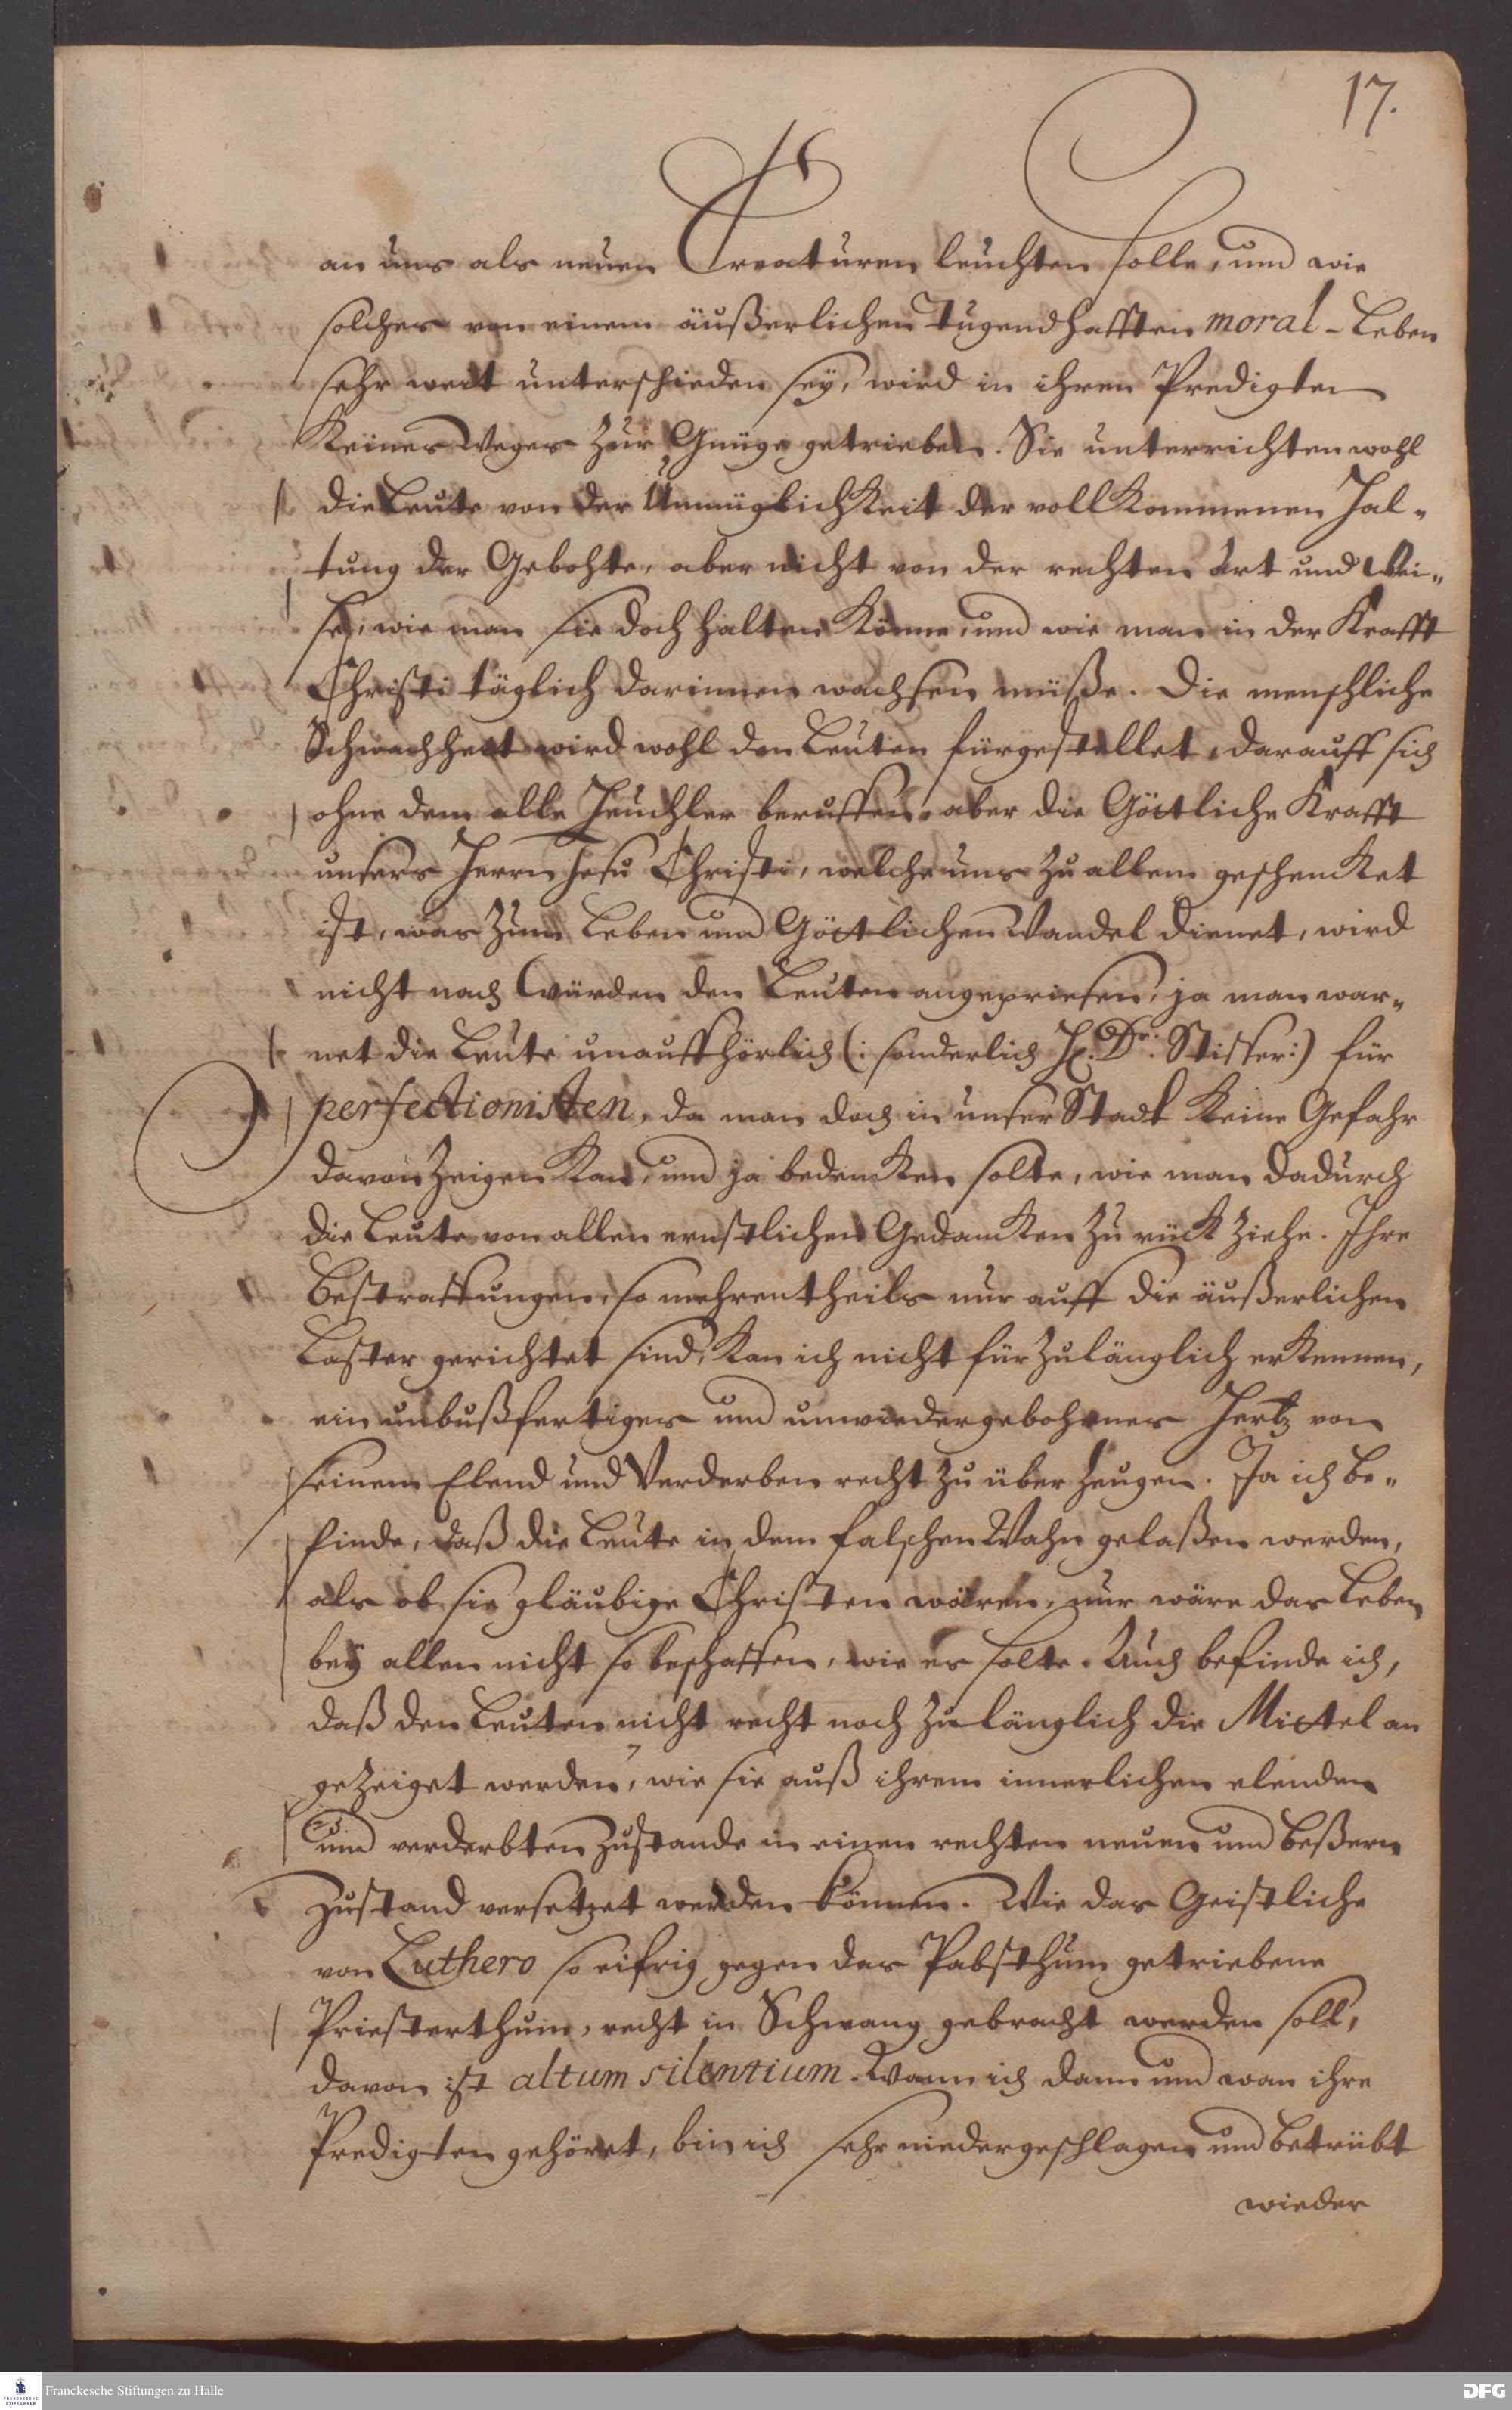 17.
an uns als neuen Creaturen leuchten solle, und wie
solches von einem äußerlichen Tugendhafften moral-Leben
sehr weit unterschieden sey, wird in ihren Predigten
Keines Weges zur Gnüge getrieben. Sie unterrichten wohl
die Leute von der Unmüglichkeit der vollkommenen Hal-
tung der Gebohte, aber nicht von der rechten Art und Wei-
se, wie man sie doch halten Könne, und wie man in der Krafft
Christi täglich darinnen wachsen müße. Die menschliche
Schwachheit wird wohl den Leuten fürgestellet, darauff sich
ohne dem alle Heuchler beruffen, aber die Göttliche Krafft
unsers Herrn Jesu Christi, welche uns zu allem geschencket
ist, was zum Leben und Göttlichen Wandel dienet, wird
nicht nach Würden den Leuten angepriesen, ja man war-
net die Leute unauffhörlich (: sonderlich H. Dr. Stisser:) für
perfectionisten, da man doch in unser Stadt Keine Gefahr
davon zeigen Kan, und ja bedencken solte, wie man dadurch
die Leute von allen ernstlichen Gedancken zu rück ziehe. Ihre
Bestraffungen, so mehrentheils nur auff die äußerlichen
Laster gerichtet sind, Kan ich nicht für zulänglich erkennen,
ein unbußfertiges und unwiedergebohrnes Hertz von
seinem Elend und Verderben recht zu über zeugen. Ja ich be-
finde, daß die Leute in dem falschen Wahn gelaßen werden,
als ob sie gläubige Christen wären, nur wäre das Leben
bey allen nicht so beschaffen, wie es solte. Auch befinde ich,
daß den Leuten nicht recht noch zulänglich die Mittel an
gezeiget werden, wie sie auß ihrem innerlichen elenden
und verderbten Zustande in einen rechten neuen und beßern
Zustand versetzet werden können. Wie das Geistliche
von Luthero so eifrig gegen das Pabsthum getriebene
Priesterthum, recht in Schwang gebracht werden soll,
davon ist altum silentium. Wann ich dann und wan ihre
Predigten gehöret, bin ich sehr niedergeschlagen und betrübt
wieder
Franckesche Stiftungen zu Halle
DFG